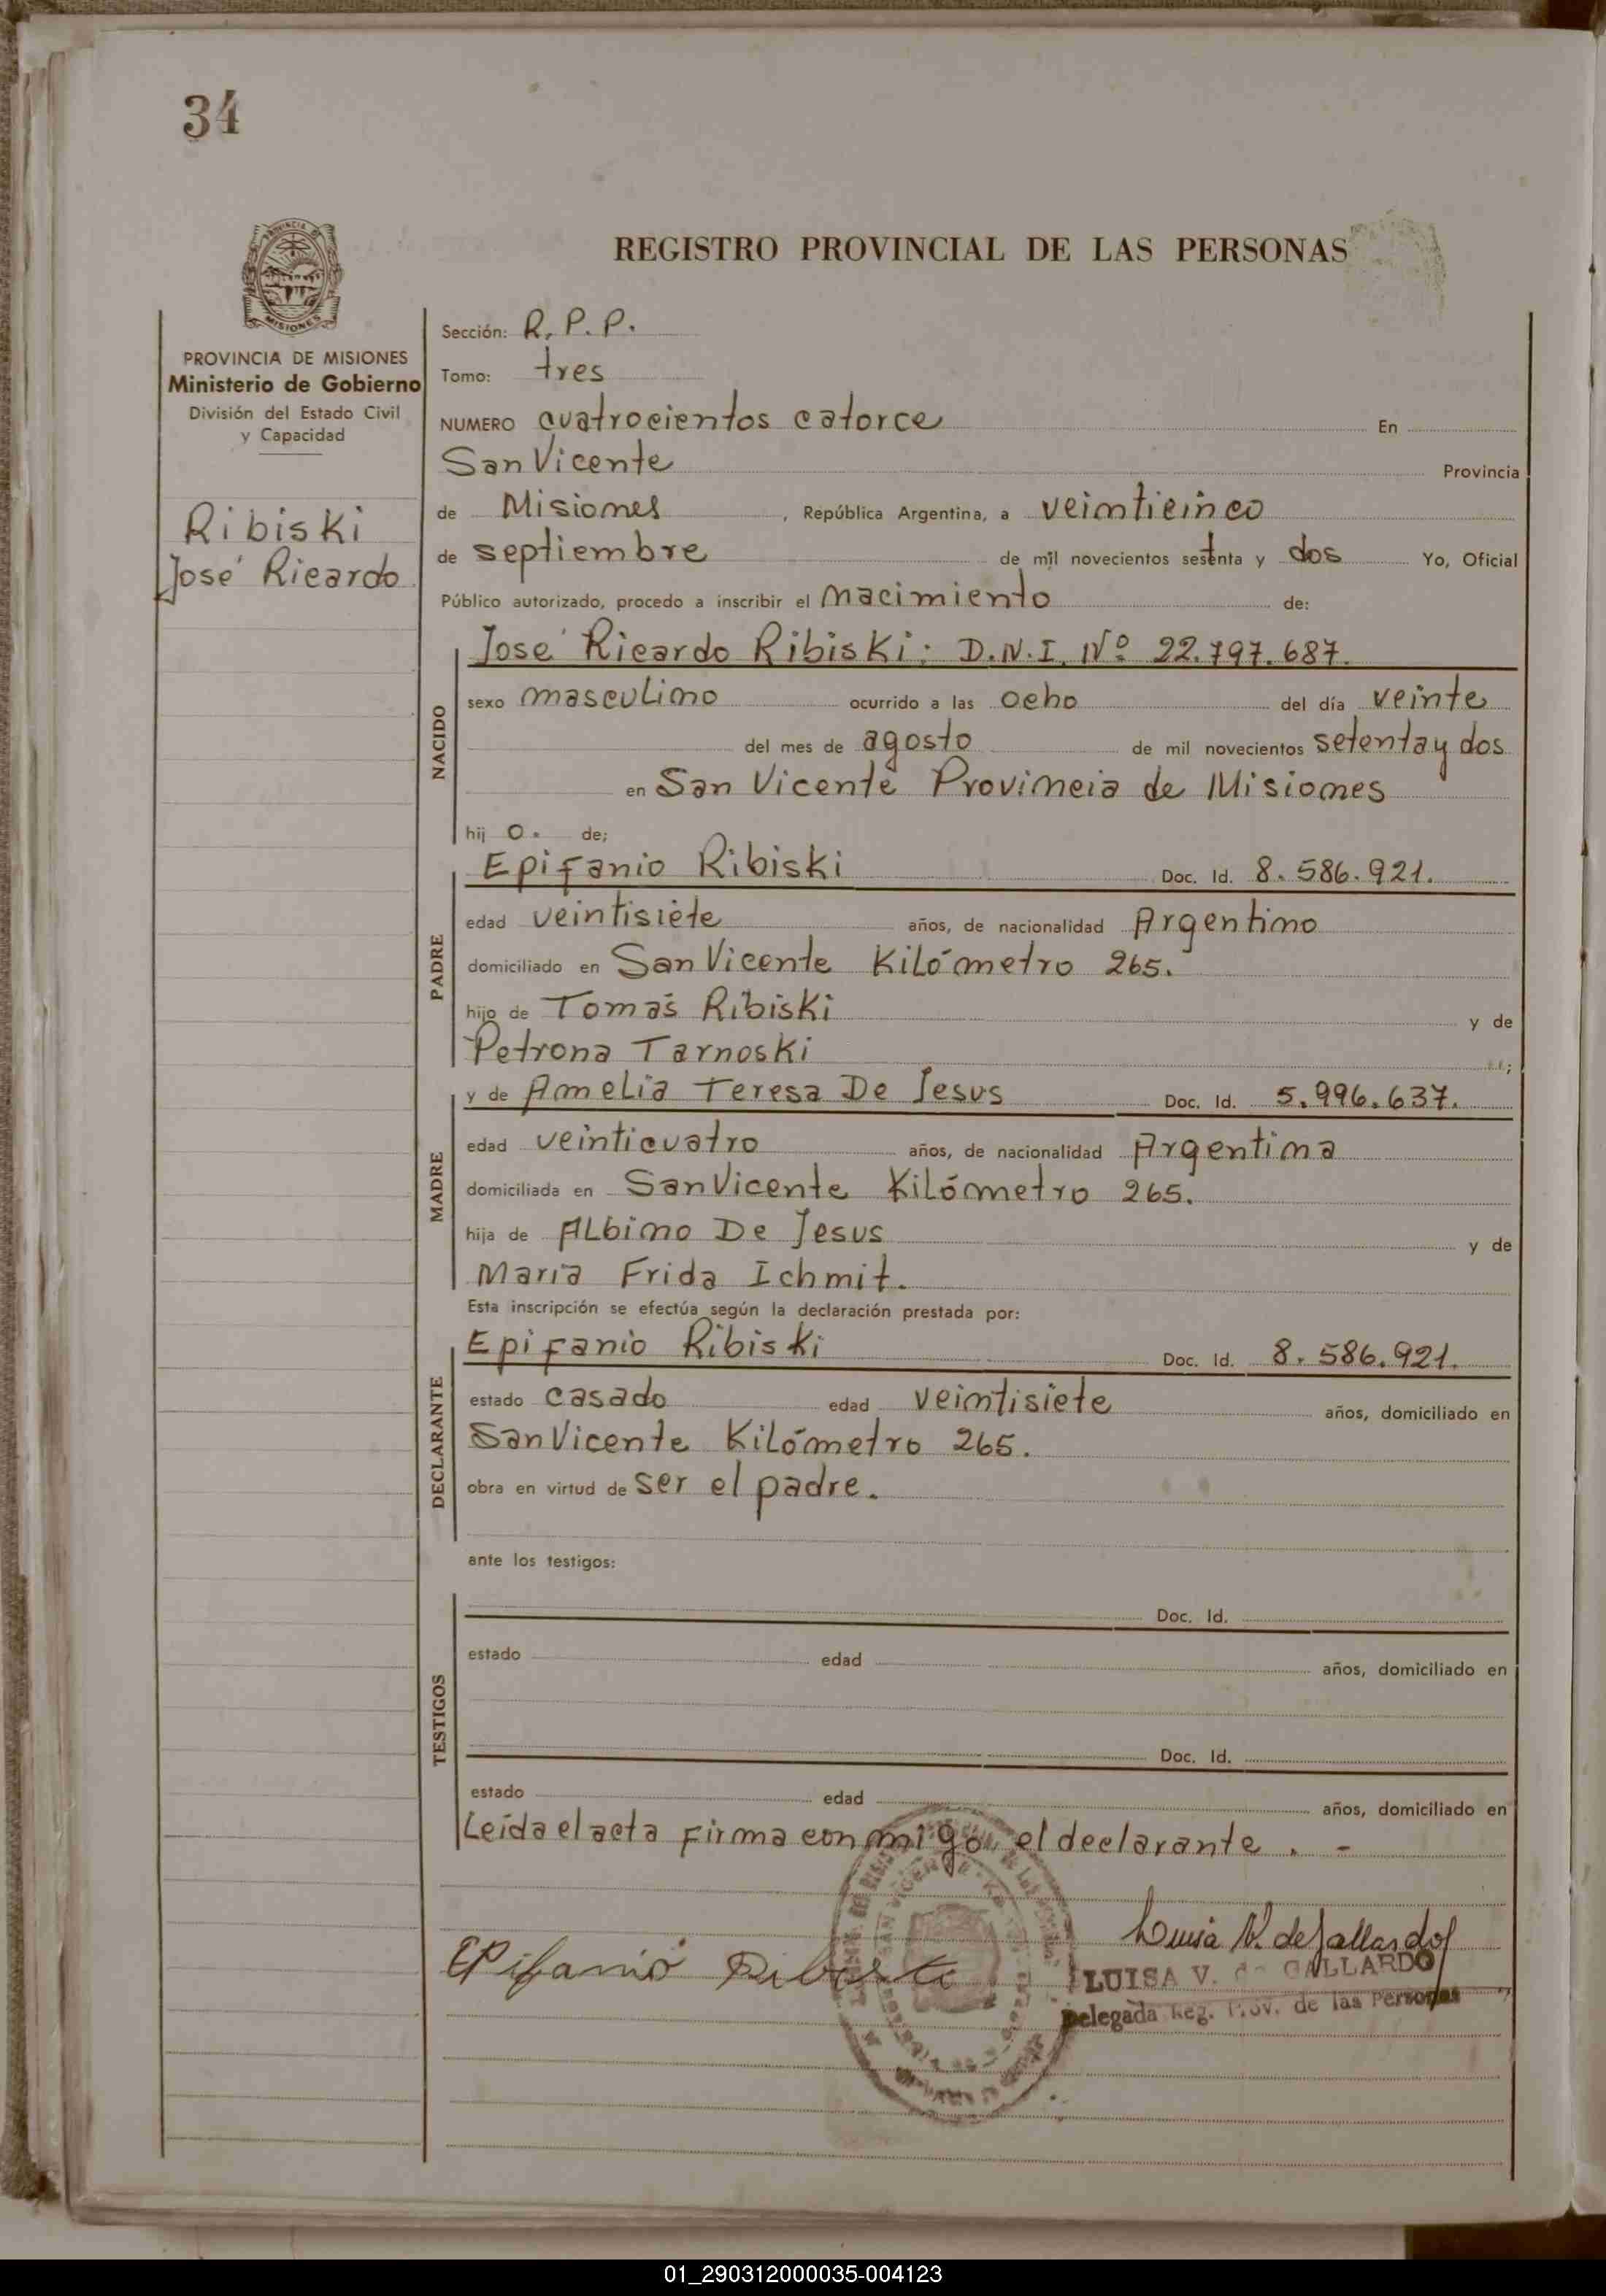 34
REGISTRO PROVINCIAL DE LAS PERSONAS
PROVINCIA DE MISIONES
Ministerio de Gobierno
División del Estado Civil
y Capacidad
Ribiski
José Ricardo
Sección: R. P. P.
Tomo: tres
NUMERO cuatrocientos catorce En
San Vicente Provincia
de Misiones, República Argentina, a veinticinco
de septiembre de mil novecientos setenta y dos Yo, Oficial
Público autorizado, procedo a inscribir el nacimiento de:
NACIDO
José Ricardo Ribiski: D.N.I. Nº 22.797.687.
sexo masculino ocurrido a las ocho del día veinte
del mes de agosto de mil novecientos setenta y dos
en San Vicente Provincia de Misiones
hij o. de;
PADRE
Epifanio Ribiski Doc. Id. 8.586.921.
edad veintisiete años, de nacionalidad Argentino
domiciliado en San Vicente Kilómetro 265.
hijo de Tomás Ribiski y de
Petrona Tarnoski
MADRE
y de Amelia Teresa De Jesus Doc. Id. 5.996.637.
edad veinticuatro años, de nacionalidad Argentina
domiciliada en San Vicente Kilómetro 265.
hija de Albino De Jesus y de
María Frida Ichmit.
Esta inscripción se efectúa según la declaración prestada por:
DECLARANTE
Epifanio Ribiski Doc. Id. 8.586.921.
estado casado edad veintisiete años, domiciliado en
San Vicente Kilómetro 265.
obra en virtud de ser el padre.
ante los testigos:
TESTIGOS
Doc. Id.
estado edad años, domiciliado en
Doc. Id.
estado edad años, domiciliado en
Leída el acta firma conmigo el declarante. -
Epifanio Ribiski
Luisa V. de Gallardo
LUISA V. de GALLARDO
Delegada Reg. Prov. de las Personas
01_290312000035-004123